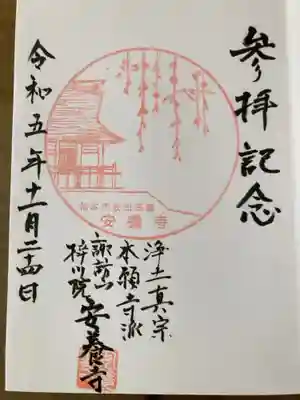 参り拝記念
浄土真宗
本願寺派
諏訪山
梓川院
安養寺
安養寺
令和五年十一月二十四日